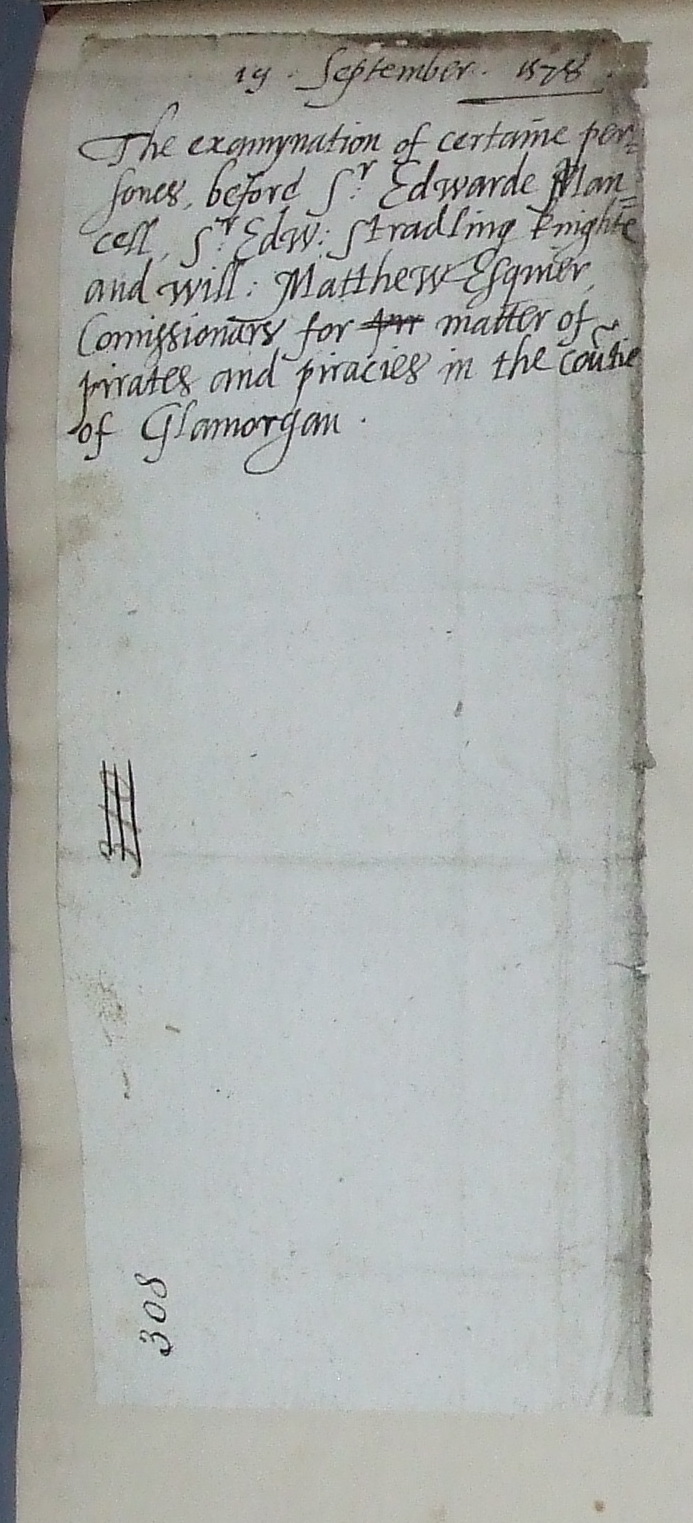 19 . September . 1578 .
The examynation of certaine per=
sones, before Sr. Edwarde Man=
cell, Sr. Edw: Stradling knighte
and will: Matthew Esquier,
Comissionars for matter of
pirates and piracies in the coūtie
of Glamorgan .
308